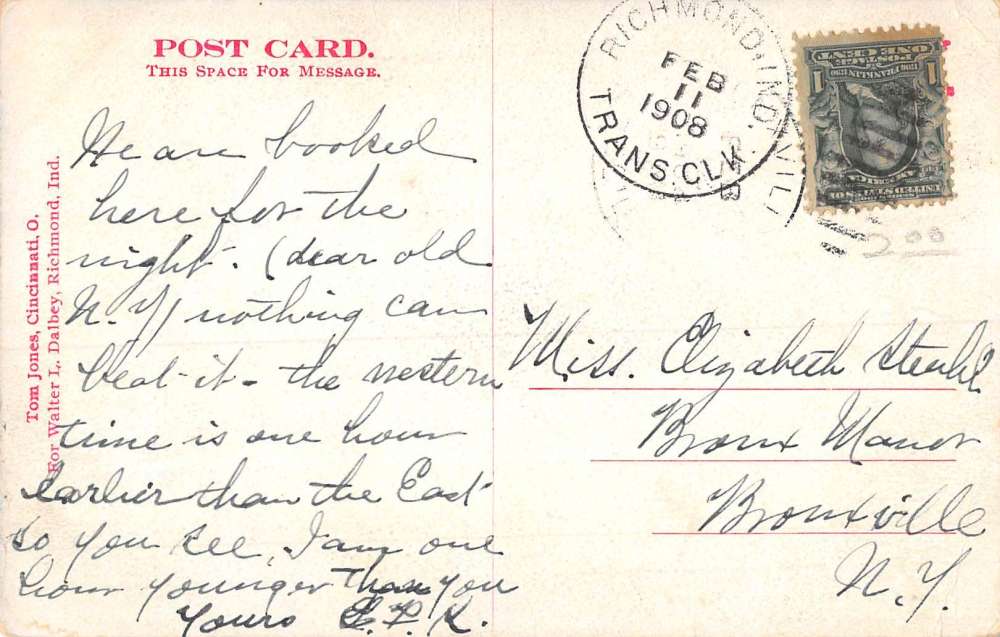 POST CARD.
THIS SPACE FOR MESSAGE.
Tom Jones, Cincinnati, O.
For Walter L. Dalbey, Richmond, Ind.
We are booked
here for the
night. (dear old
N. Y) nothing can
beat it - the western
time is one hour
earlier than the East
so you see, I am one
hour younger than you
Yours
RICHMOND, IND.
FEB
11
1908
TRANS. CLK.
VILL
1 POSTAGE ONE CENT 1
FRANKLIN
UNITED STATES OF AMERICA
200
Miss. Elizabeth
Bronx Manor
Bronxville
N. Y.